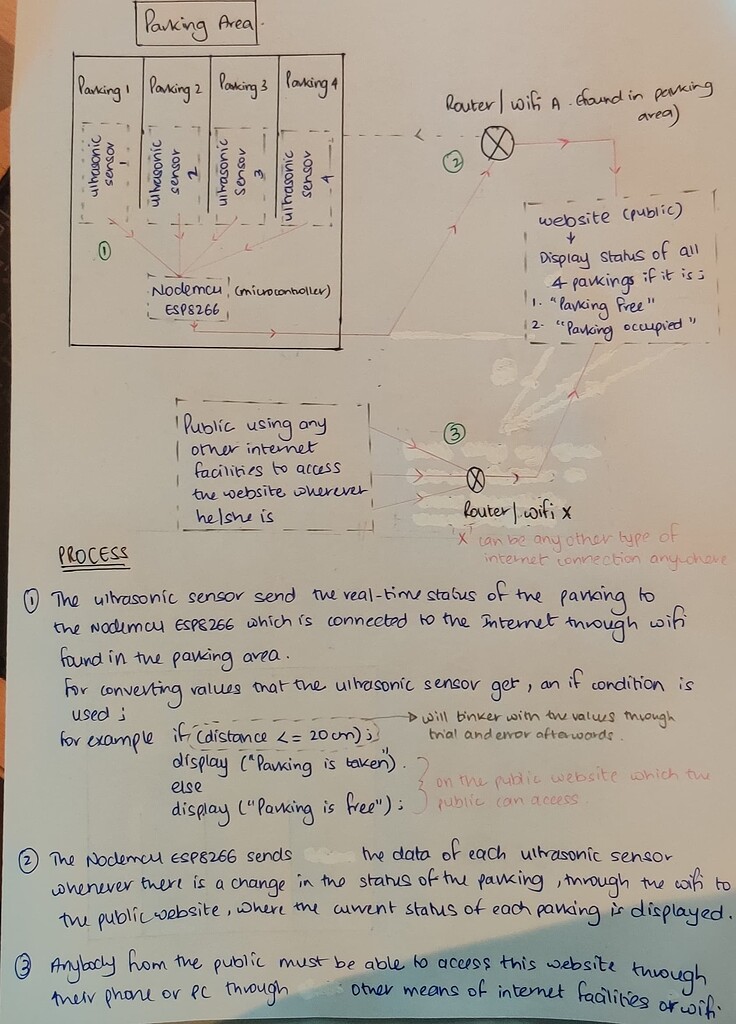 Parking Area.
Parking 1
Parking 2
Parking 3
Parking 4
ultrasonic
sensor
1
ultrasonic
sensor
2
ultrasonic
sensor
3
ultrasonic
sensor
4
①
Nodemcu (microcontroller)
ESP8266
Router/wifi A. (found in parking
area)
②
website (public)
Display status of all
4 parkings if it is;
1. "Parking Free"
2. "Parking occupied"
Public using any
other internet
facilities to access
the website wherever
he/she is
③
Router/wifi X
'X' can be any other type of
internet connection anywhere
PROCESS
① The ultrasonic sensor send the real-time status of the parking to
the Nodemcu ESP8266 which is connected to the Internet through wifi
found in the parking area.
for converting values that the ultrasonic sensor get, an if condition is
used;
for example if (distance <= 20cm);
will tinker with the values through
trial and error afterwards.
display ("Parking is taken").
else
display ("Parking is free");
on the public website which the
public can access.
② The Nodemcu ESP8266 sends the data of each ultrasonic sensor
whenever there is a change in the status of the parking, through the wifi to
the public website, where the current status of each parking is displayed.
③ Anybody from the public must be able to access this website through
their phone or PC through other means of internet facilities or wifi.